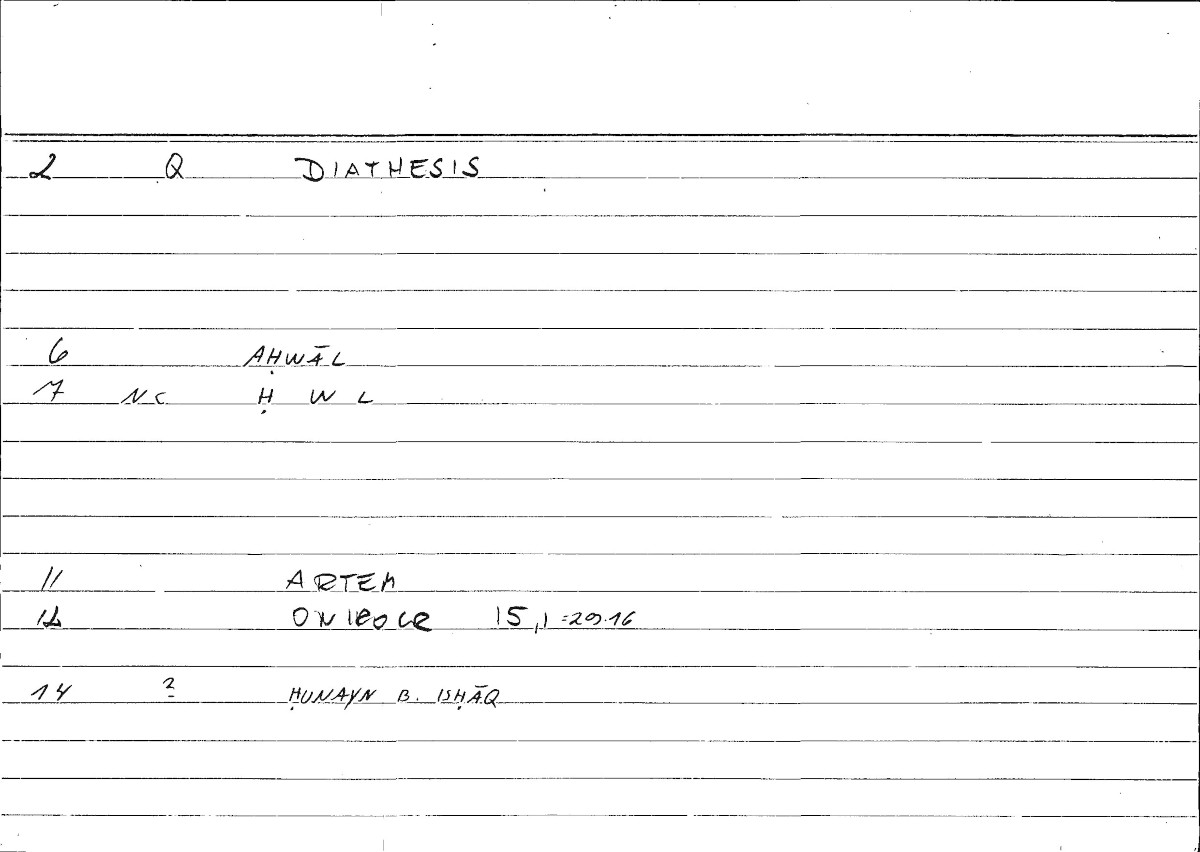 2 Q DIATHESIS
6 AḤWĀL
7 NC Ḥ W L
11 ARTEM
12 ONIROCR 15,1=20.16
14 ? ḤUNAYN B. ISḤĀQ